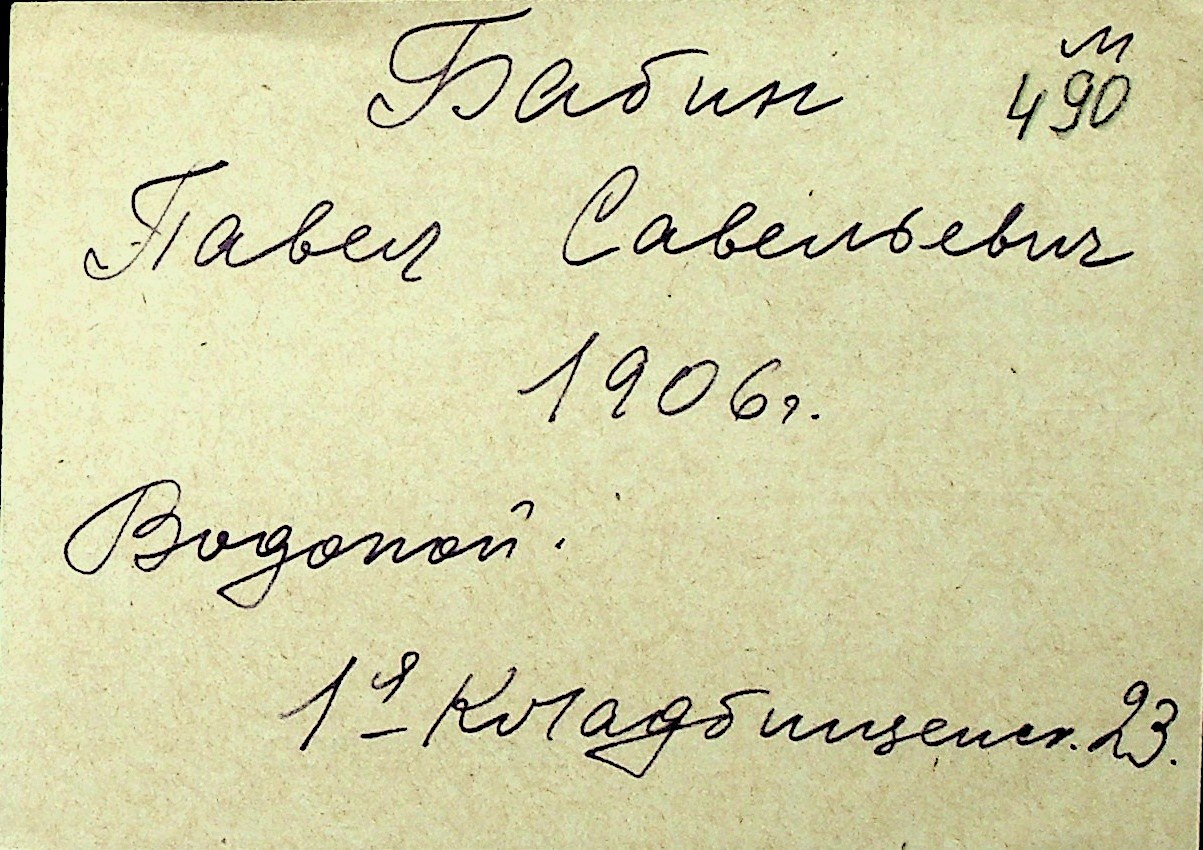 Бабин
м
490
Павел Савельевич
1906 г.
Водопой.
1я Кладбищенск. 23.